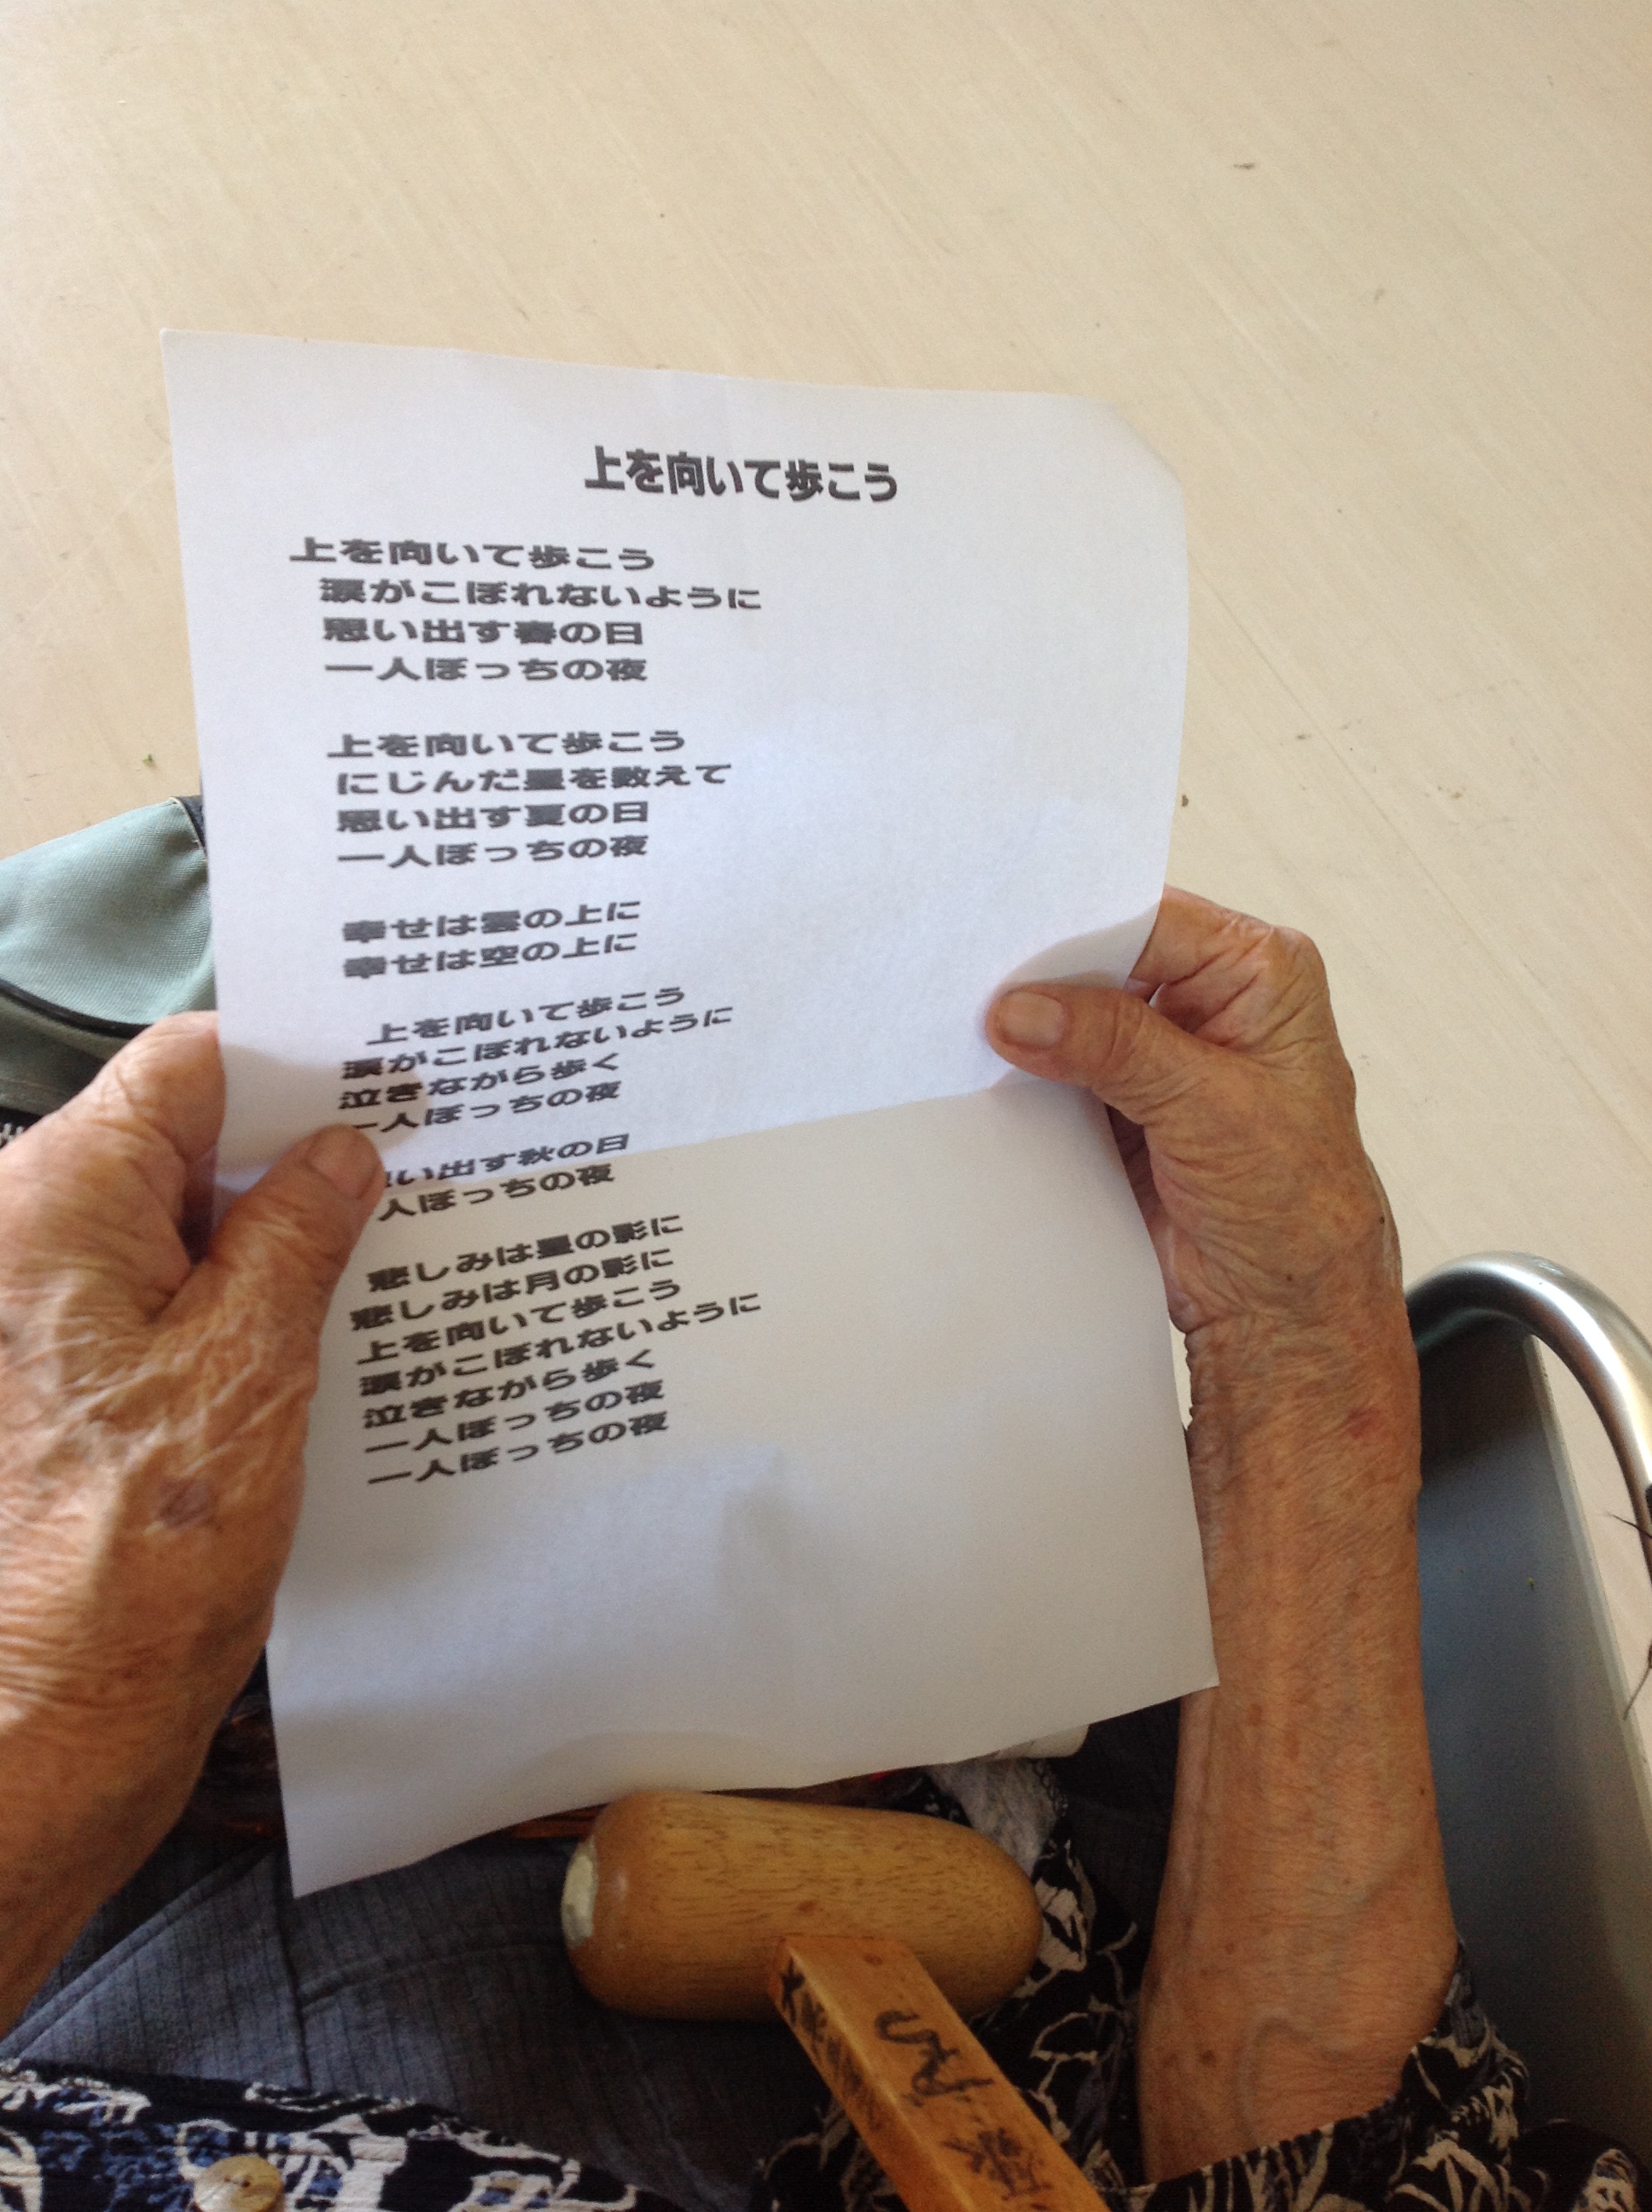 上を向いて歩こう
上を向いて歩こう
涙がこぼれないように
思い出す春の日
一人ぼっちの夜
上を向いて歩こう
にじんだ星を数えて
思い出す夏の日
一人ぼっちの夜
幸せは雲の上に
幸せは空の上に
上を向いて歩こう
涙がこぼれないように
泣きながら歩く
一人ぼっちの夜
い出す秋の日
人ぼっちの夜
悲しみは星の影に
悲しみは月の影に
上を向いて歩こう
涙がこぼれないように
泣きながら歩く
一人ぼっちの夜
一人ぼっちの夜